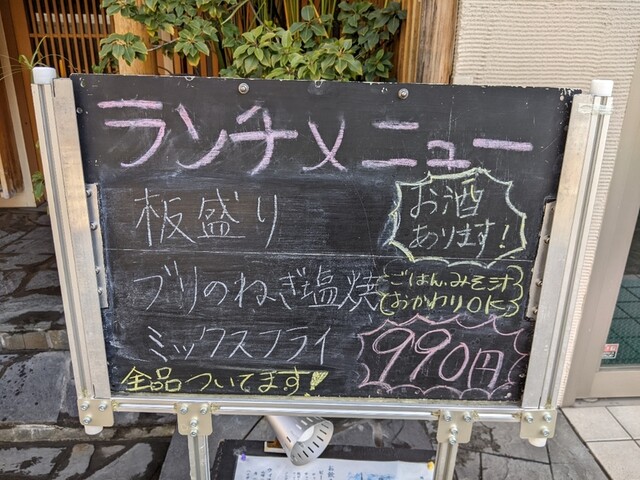 ランチメニュー
板盛り
お酒
あります!
ブリのねぎ塩焼
ごはん・みそ汁
おかわりOK
ミックスフライ
990円
全品ついてます